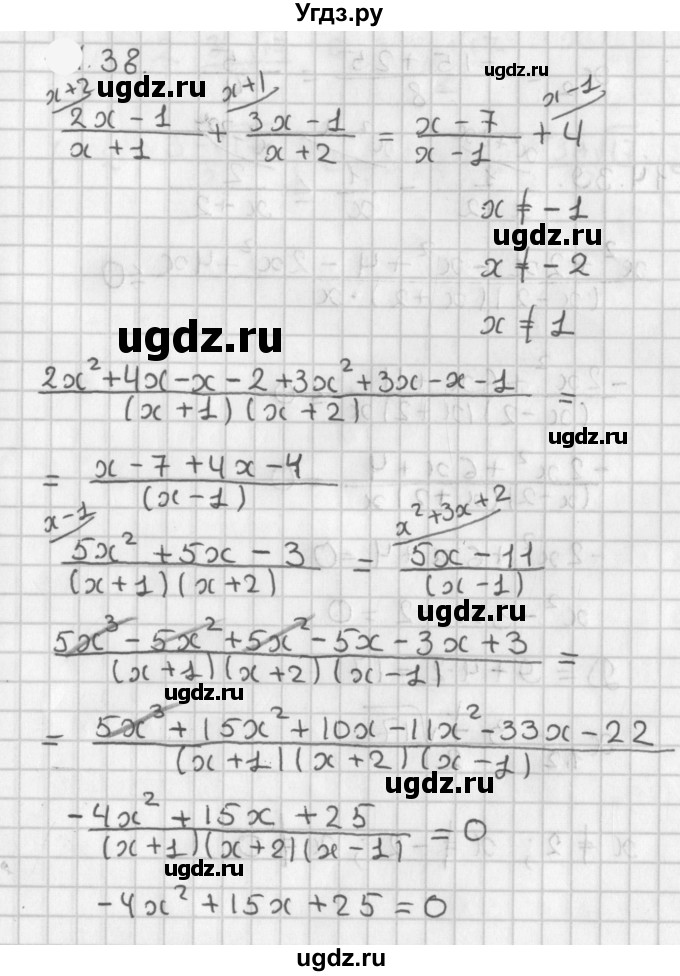 Угдз.ру
.38.
ugdz.ru
ugdz.ru
x+2 x+1 x-1
(2x - 1)/(x + 1) + (3x - 1)/(x + 2) = (x - 7)/(x - 1) + 4
x ≠ -1
ugdz.ru
x ≠ -2
x ≠ 1
ugdz.ru
(2x² + 4x - x - 2 + 3x² + 3x - x - 1)/((x + 1)(x + 2)) =
ugdz.ru
= (x - 7 + 4x - 4)/((x - 1))
x-1 x²+3x+2
(5x² + 5x - 3)/((x + 1)(x + 2)) = (5x - 11)/((x - 1))
ugdz.ru
(5x³ - 5x² + 5x² - 5x - 3x + 3)/((x + 1)(x + 2)(x - 1)) =
ugdz.ru
= (5x³ + 15x² + 10x - 11x² - 33x - 22)/((x + 1)(x + 2)(x - 1))
ugdz.ru
(-4x² + 15x + 25)/((x + 1)(x + 2)(x - 1)) = 0
ugdz.ru
-4x² + 15x + 25 = 0
ugdz.ru